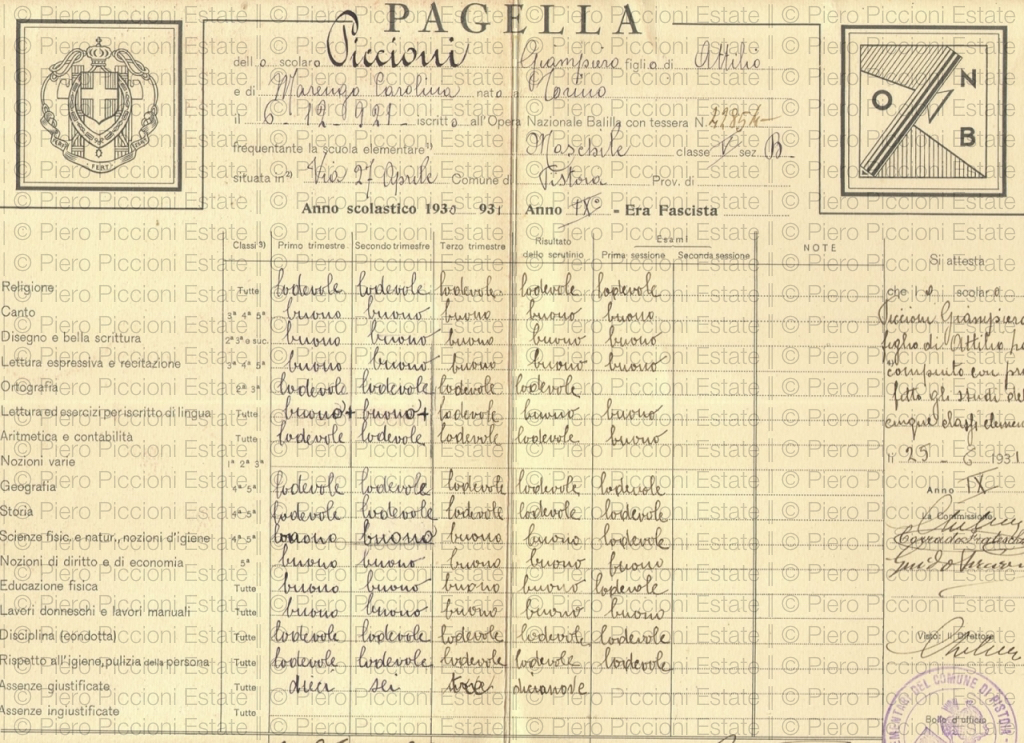 PAGELLA
dell o scolaro Piccioni Giampiero figlio di Attilio
e di Marengo Carolina nato a Torino
il 6-12-921 iscritto all'Opera Nazionale Balilla con tessera N.
frequentante la scuola elementare¹) Maschile classe V sez. B
situata in²) Via 27 Aprile Comune di Pistoia Prov. di
Anno scolastico 1930 931 Anno IX° - Era Fascista
O N B
FERT
Classi³) Primo trimestre Secondo trimestre Terzo trimestre Risultato dello scrutinio Esami Prima sessione Seconda sessione NOTE
Religione Tutte lodevole lodevole lodevole lodevole lodevole
Canto 3ª 4ª 5ª buono buono buono buono buono
Disegno e bella scrittura 2ª 3ª e suc. buono buono buono buono buono
Lettura espressiva e recitazione 3ª 4ª 5ª buono buono buono buono buono
Ortografia 2ª 3ª lodevole lodevole lodevole lodevole
Lettura ed esercizi per iscritto di lingua Tutte buono+ buono+ lodevole buono buono
Aritmetica e contabilità Tutte lodevole lodevole lodevole lodevole buono
Nozioni varie 1ª 2ª 3ª
Geografia 4ª 5ª lodevole lodevole lodevole lodevole lodevole
Storia 4ª 5ª lodevole lodevole lodevole lodevole lodevole
Scienze fisic. e natur., nozioni d'igiene 4ª 5ª buono buono buono lodevole
Nozioni di diritto e di economia 5ª buono buono buono buono buono
Educazione fisica Tutte buono buono buono buono lodevole
Lavori donneschi e lavori manuali Tutte buono buono buono buono buono
Disciplina (condotta) Tutte lodevole lodevole lodevole lodevole lodevole
Rispetto all'igiene, pulizia della persona Tutte lodevole lodevole lodevole lodevole lodevole
Assenze giustificate Tutte dieci sei tre dicianove
Assenze ingiustificate Tutte
Si attesta
che l o scolaro
Piccioni Giampiero
figlio di Attilio
compiuto con pro
fitto gli studi del
cinque classi elemen
il 25 - 6 1931
Anno IX
La Commissione
Visto: Il Direttore
MENTARI DEL COMUNE DI PISTOIA
Bollo d'ufficio
© Piero Piccioni Estate